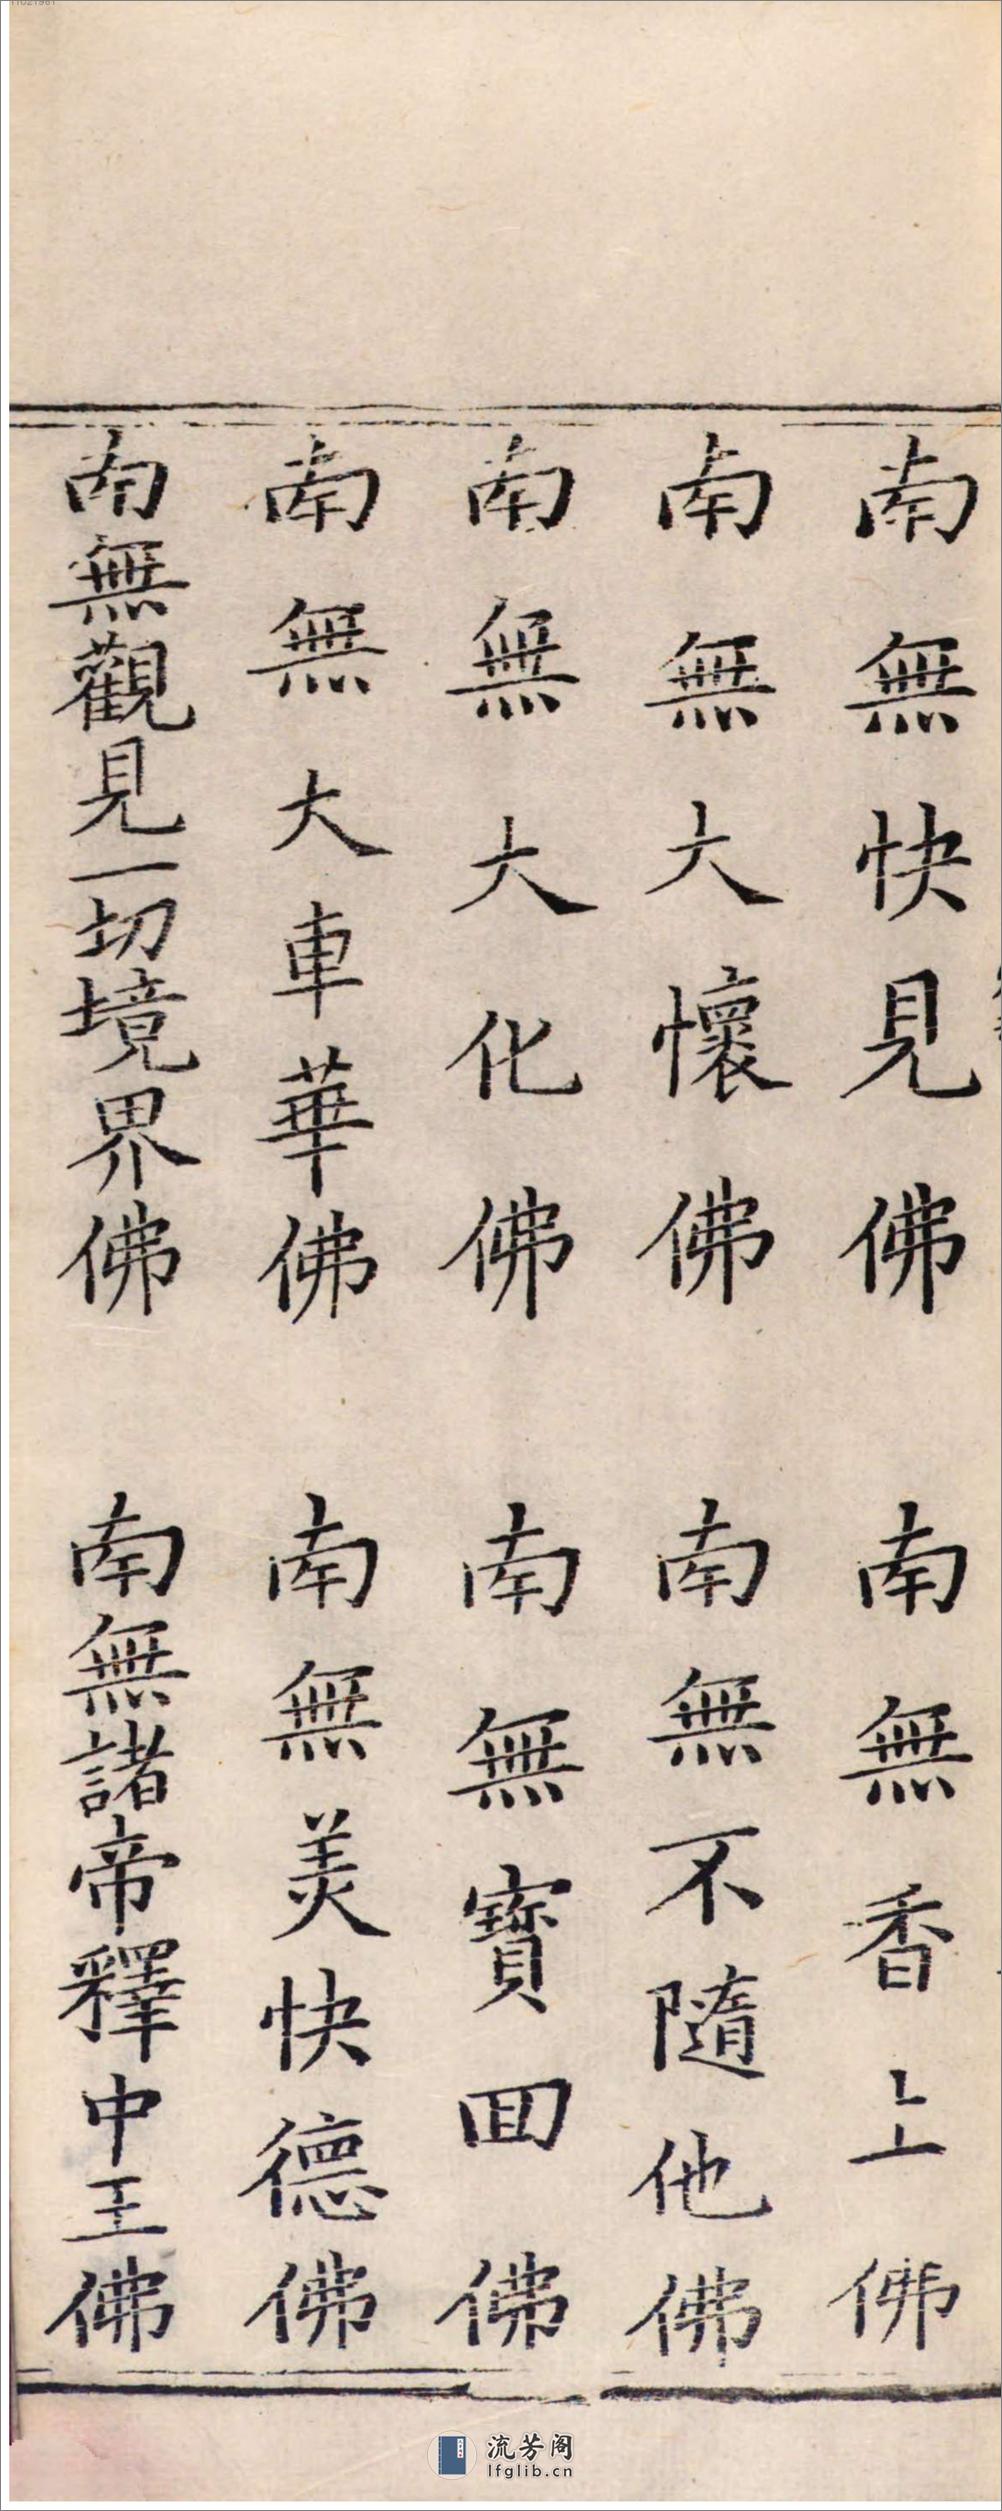 南無快見佛　南無香上佛
南無大懷佛　南無不隨他佛
南無大化佛　南無寶面佛
南無大車華佛　南無美快德佛
南無觀見一切境界佛　南無諸帝釋中王佛
流芳阁
lfglib.cn